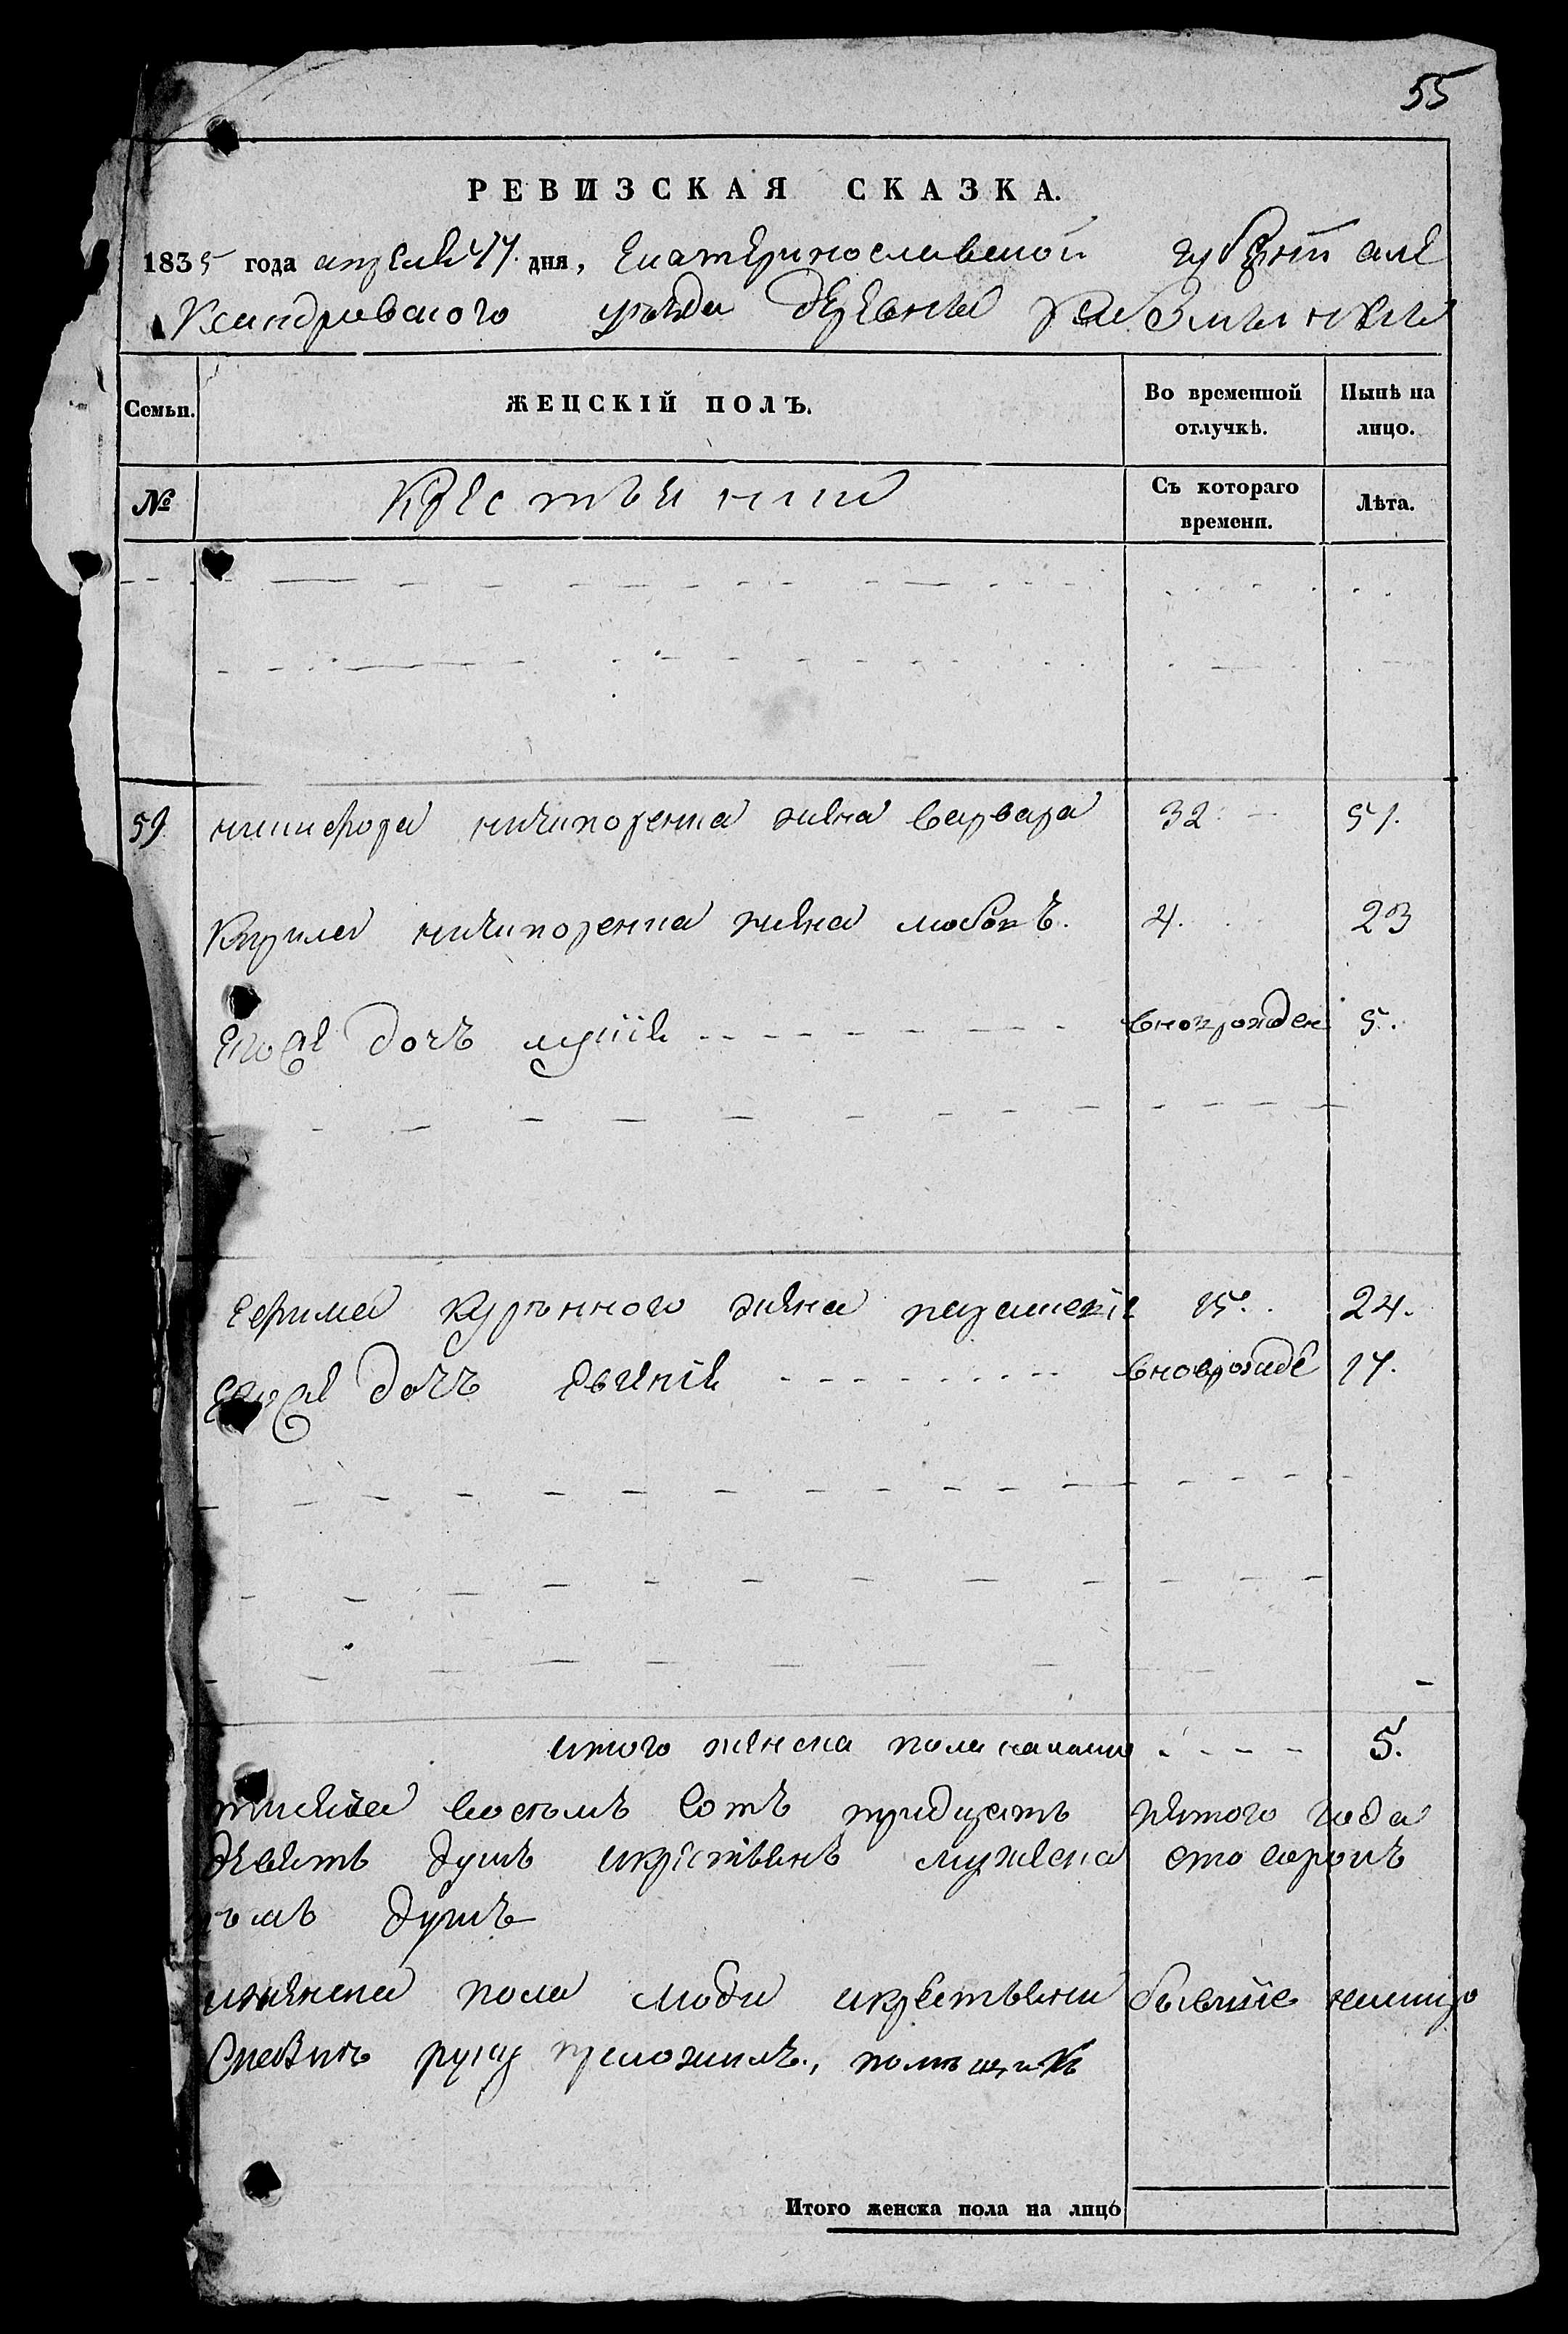 55
РЕВИЗСКАЯ СКАЗКА.
1835 года апреля 17 дня, Екатеринославской губернiи алѣ
ксандровского уѣзда деревни
Семьи. ЖЕНСКІЙ ПОЛЪ. Во временной отлучкѣ. Нынѣ на лицо.
№ Крестьянки Съ котораго времени. Лѣта.
59 никифора ничипоренка жена варвара 32 51.
Кирила ничипоренка жена любовъ. 4. 23
Его дочъ марiя вновъ рожден 5.
Ефима Курѣнного жена 15. 24.
Его дочъ вновърожде 17.
итого женска пола налицо 5.
тысяча восемъ сотъ тридцать пятого года
девять душъ крестьянъ мужеска сто сорокъ
душъ
женска пола люди икрестьяни бывшие налицо
руку приложилъ, помѣщикъ
Итого женска пола на лицо